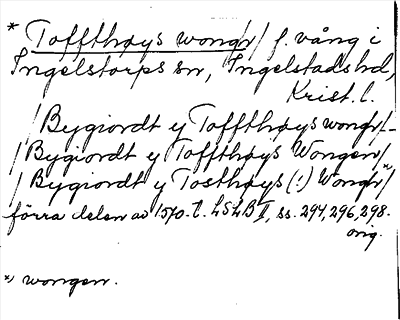 * Toffthøys wongr/ f. vång i
Ingelstorps sn, Ingelstads hd,
Krist. l.
/ Bygiordt y Toffthøys wongr/ -
/ Bygiordt y Toffthøys Wongen /
/ Bygiordt y Tosthøys (!) Wongr *) /
förra delen av 1570-t. LSLB II, ss. 294, 296, 298.
orig.
*) wongen.